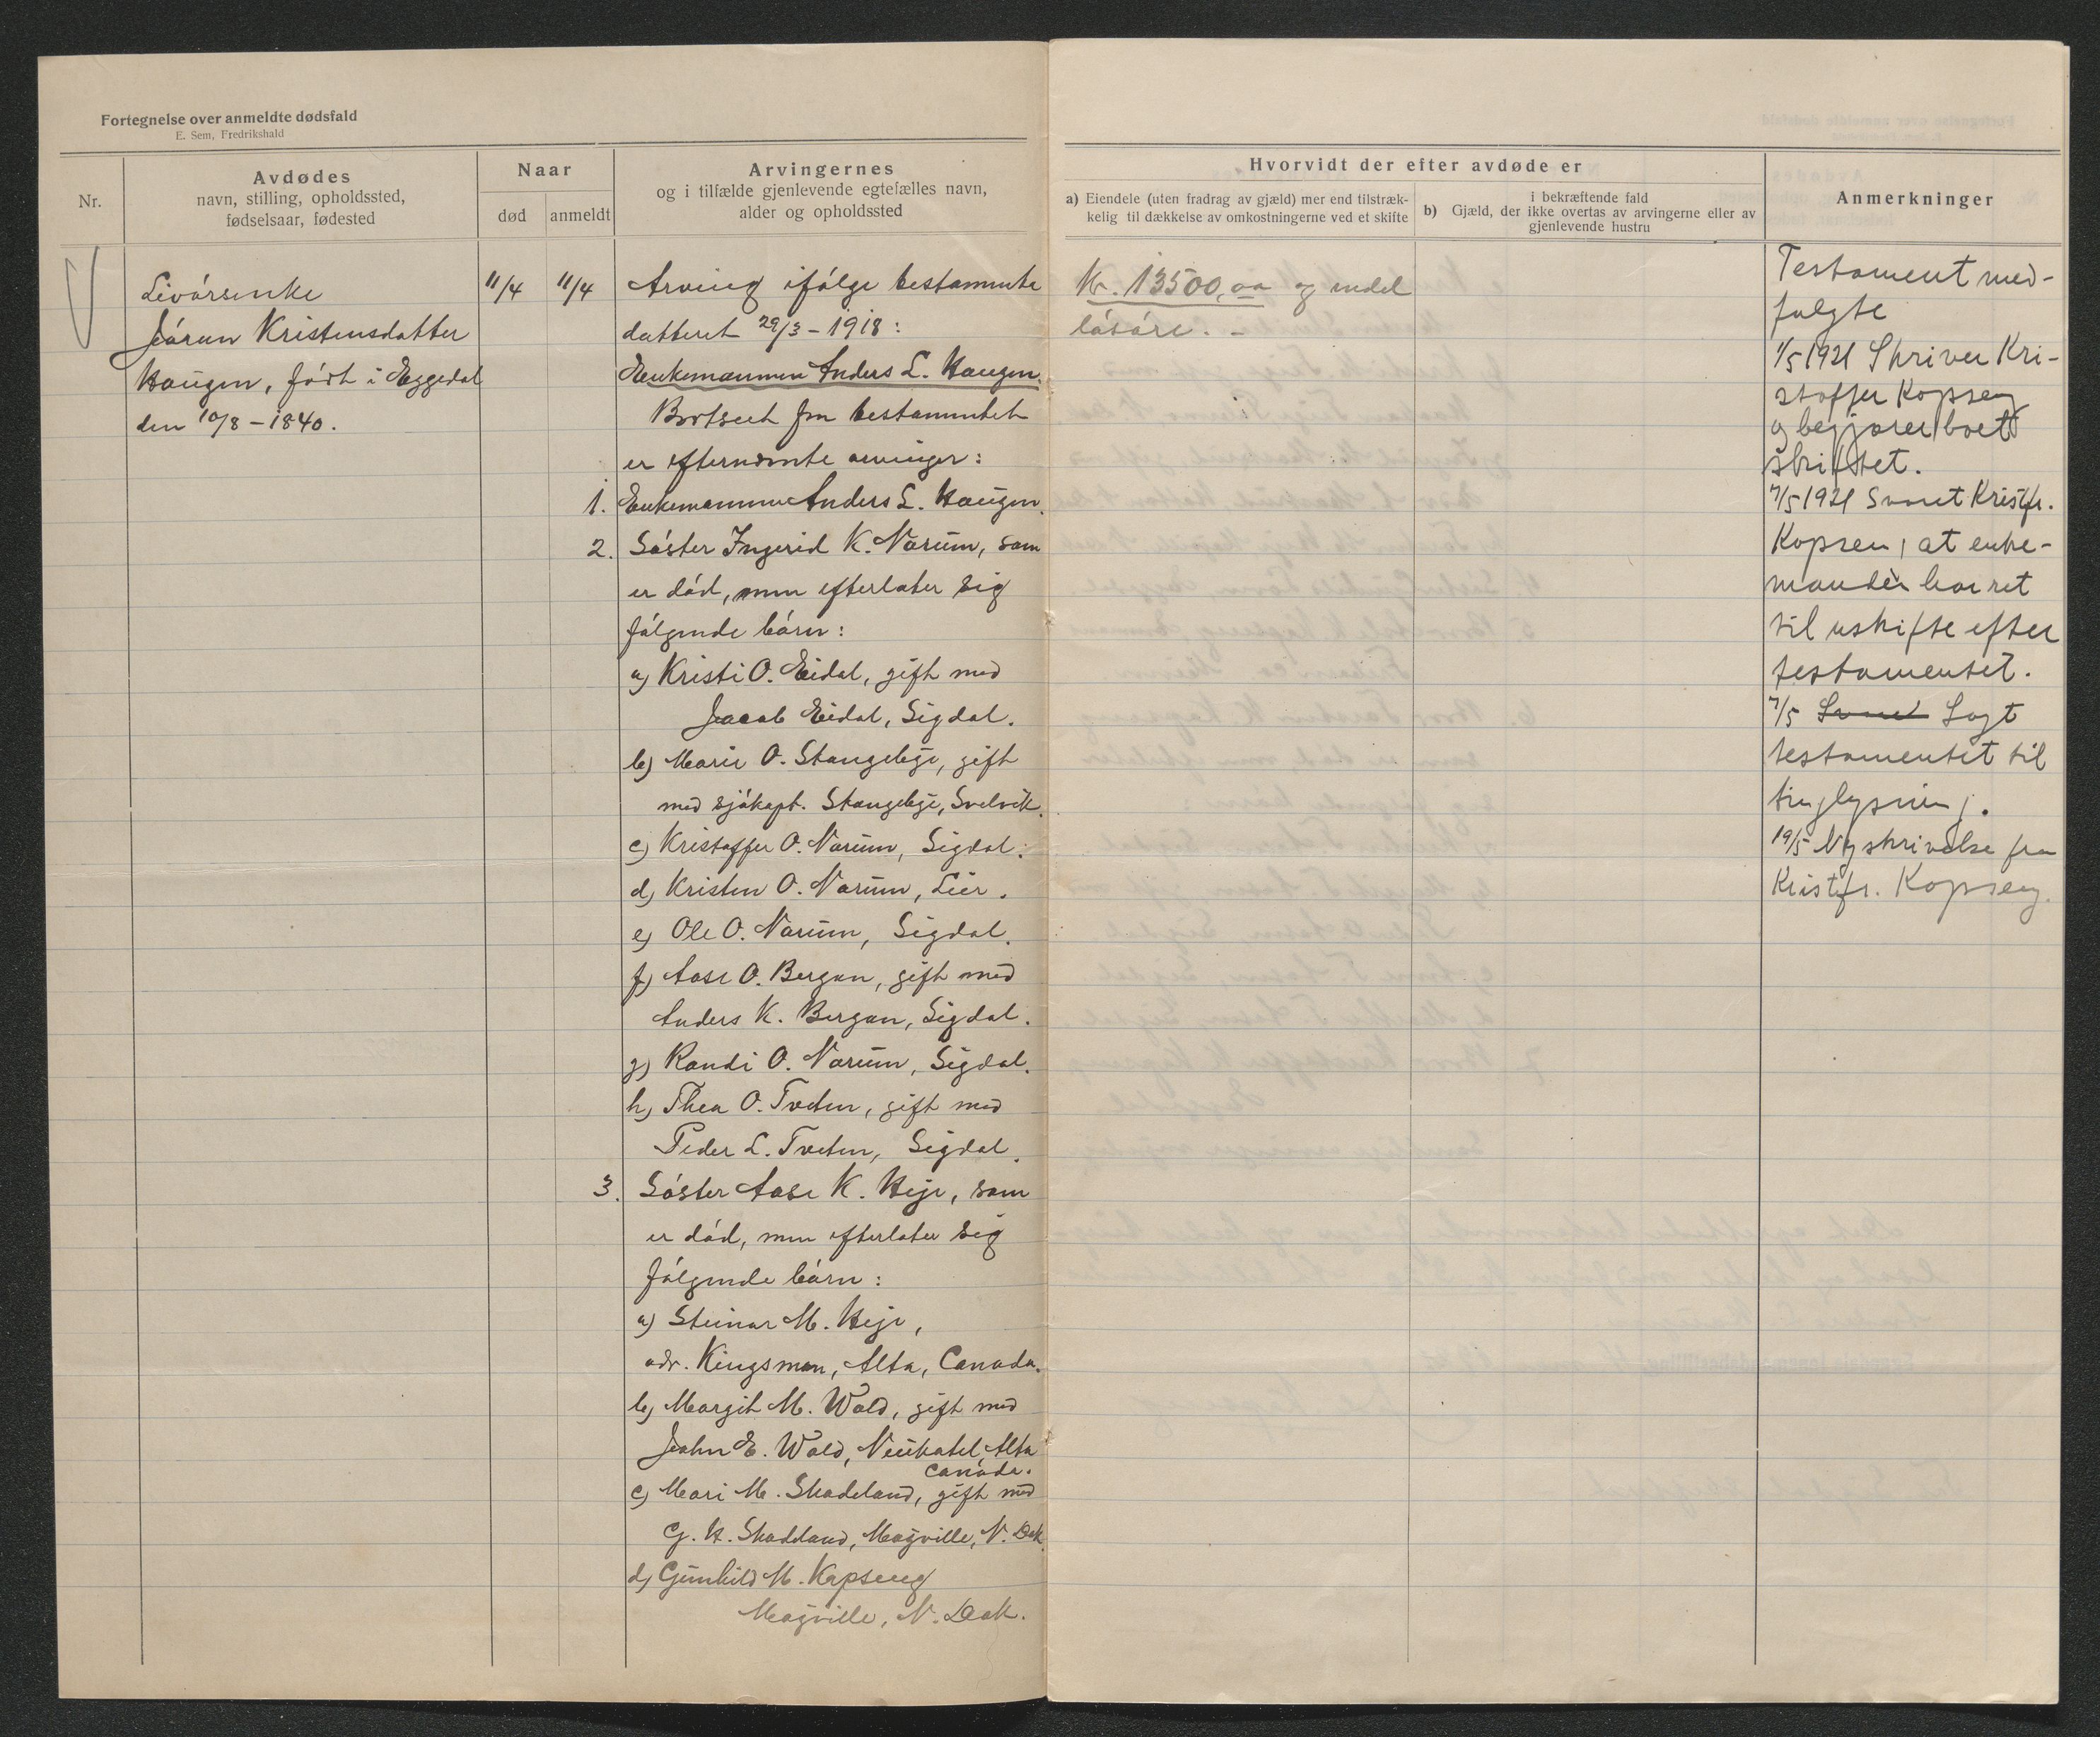 Fortegnelse over anmeldte dødsfald
E. Sem, Fredrikshald
Nr.
Avdødes
navn, stilling, opholdssted,
fødselsaar, fødested
Naar
død
anmeldt
Arvingernes
og i tilfælde gjenlevende egtefælles navn,
alder og opholdssted
Hvorvidt der efter avdøde er
a) Eiendele (uten fradrag av gjæld) mer end tilstræk-
kelig til dækkelse av omkostningerne ved et skifte
b) i bekræftende fald
Gjæld, der ikke overtas av arvingerne eller av
gjenlevende hustru
Anmerkninger
Livørsenke
Jøran Kristensdatter
Haugen, født i Eggedal
den 10/8-1840.
11/4
11/4
Arving ifølge testamente
datteret 29/3-1918:
Enkemannen Anders L. Haugen.
Bortseet fra testamentet
er efternævnte arvinger:
1. Enkemannen Anders L. Haugen.
2. Søster Ingerid K. Narum, som
er død, men efterlater sig
følgende børn:
a) Kristi O. Eidal, gift med
Jacob Eidal, Sigdal.
b) Marie O. Stangebye, gift
med sjøkapt. Stangebye, Svelvik.
c) Kristoffer O. Narum, Sigdal.
d) Kristen O. Narum, Lier.
e) Ole O. Narum, Sigdal.
f) Aase O. Bergan, gift med
Anders K. Bergan, Sigdal.
g) Randi O. Narum, Sigdal.
h) Thea O. Tveten, gift med
Peder L. Tveten, Sigdal.
3. Søster Aase K. Heje, som
er død, men efterlater sig
følgende børn:
a) Steinar M. Heje,
adr. Kingsman, Alta, Canada.
b) Margit M. Wold, gift med
John E. Wold, Neuhatel, Alta
Canada.
c) Mari M. Skadeland, gift med
G. H. Skadeland, Mayville, N. Dak.
d) Gunhild M. Kopseng
Mayville, N. Dak.
Kr. 13500,00 og endel
løsøre. -
Testament med-
fulgte
1/5 1921 Skriver Kri-
stoffer Kopseng
og begjærer boet
skiftet.
7/5 1921 Svaret Kristfr.
Kopsen, at enke-
manden har ret
til uskifte efter
testamentet.
7/5 Svaret Lagt
testamentet til
tinglysning.
19/5 Ny skrivelse fra
Kristfr. Kopseng.